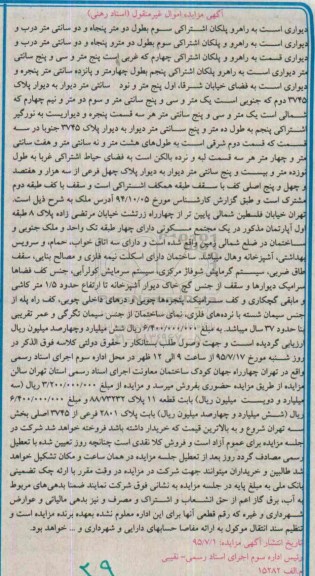 آگهی مزایده اموال غیرمنقول (اسناد رهنی)
دیواری است به راهرو و پلکان اشتراکی سوم بطول دو متر پنجاه و دو سانتی متر درب و
دیواری است به راهرو و پلکان اشتراکی سوم بطول دو مترو پنجاه و دو سانتی متر درب و
دیواری قسمت به راهرو و پلکان اشتراکی چهارم که غربی است پنج متر و سی و پنج سانتی
متر دیواری است به راهرو پلکان اشتراکی پنجم بطول چهارمتر و پانزده سانتی متر پنجره و
دیواری است به فضای خیابان شرقا، اول پنج متر و نود سانتی متر دیوار به دیوار پلاک
۳۷۴۵ دوم که جنوبی است یک متر و سی و پنج سانتی متر و سوم دو متر و نیم چهارم که
شمالی است یک متر و سی و پنج سانتی متر هر سه قسمت پنجره و دیواریست به نورگیر
اشتراکی پنجم به طول ده متر و پنج سانتی متر دیوار به دیوار پلاک ۳۷۴۵ جنوبا در سه
قسمت که قسمت دوم شرقی است به طول‌های هشت متر و نه سانتی متر و هفت سانتی
متر و چهار متر هر سه قسمت لبه و نرده بالکن است به فضای حیاط اشتراکی غربا به طول
نوزده متر و بیست و پنج سانتی متر دیوار به دیوار پلاک چهل فرعی از سه هزار و هفتصد
و چهل و پنج اصلی کف با سقف طبقه همکف اشتراکی است و سقف با کف طبقه دوم
مشترک است و طبق گزارش کارشناس مورخ ۹۴/۱۰/۰۵ آدرس ملک به شرح ذیل است.
تهران خیابان فلسطین شمالی پایین تر از چهارراه زرتشت خیابان مرتضی زاده پلاک ۸ طبقه
اول آپارتمان مذکور در یک مسکونی دارای چهار طبقه تک واحد و ملک جنوبی و
ساختمان در ضلع شمالی زمین واقع شده است و دارای سه اتاق خواب، حمام، و سرویس
بهداشتی، آشپزخانه وهال میباشد. ساختمان دارای اسکلت نیمه فلزی و مصالح بنایی، سقف
طاق ضربی، سیستم گرمایش شوفاژ مرکزی، سیستم سرمایش کولرآبی، جنس کف فضاها
سرامیک دیوارها و سقف از جنس گچ خاک دیوار آشپزخانه تا ارتفاع حدود ۱/۵ متر کاشی
و مابقی گچکاری و کف سرامیک پنجره‌ها چوبی و درهای داخلی چوبی، کف راه پله از
جنس سیمان شسته با نرده‌های فلزی، نمای ساختمان از جنس سیمان تگرگی و عمر تقریبی
بنا حدود ۳۷ سال میباشد. به مبلغ ۶/۴۰۰/۰۰۰/۰۰۰ ریال شش میلیارد وچهارصد میلیون ریال
ارزیابی گردیده است و جهت وصول طلب بستانکار و حقوق دولتی کلاسه فوق الذکر در
روز شنبه مورخ ۹۵/۷/۱۷ از ساعت ۹ الی ۱۲ ظهر در محل اداره سوم اجرای اسناد رسمی
واقع در تهران چهارراه جهان کودک ساختمان معاونت اجرای اسناد رسمی استان تهران سالن
مزایده از طریق مزایده حضوری بفروش میرسد و مزایده از مبلغ ۳/۲۰۰/۰۰۰/۰۰۰ ریال (سه
میلیارد و دویست میلیون ریال) بابت قطعه ۱۱ پلاک و مبلغ ۶/۴۰۰/۰۰۰/۰۰۰
ریال (شش میلیارد و چهارصد میلیون ریال) بابت پلاک ۲۸۰۱ فرعی از ۳۷۴۵ اصلی بخش
سه تهران شروع و به بالاترین قیمت که خریدار داشته باشد فروخته خواهد شد شرکت در
جلسه مزایده برای عموم آزاد است و فروش کلا نقدی است چنانچه روز تعیین شده با تعطیل
رسمی مصادف گردد روز بعد از تعطیل جلسه مزایده در همان ساعت و مکان تشکیل خواهد
شد طالبین و خریداران میتوانند جهت شرکت در مزایده در وقت مقرر با ارئه چک تضمینی
بانک ملی به مبلغ پایه در جلسه مزایده به نشانی فوق شرکت نمایند ضمنا بدهی‌های مربوط
به آب، برق گاز اعم از حق انشعاب و اشتراک و مصرف و نیز بدهی مالیاتی و عوارض
شهرداری و غیره که رقم قطعی آنها برای این اداره معلوم نشده بعهده برنده مزایده است و
تنظیم سند انتقال موکول به ارائه مفاصا حسابهای دارایی و شهرداری و ... خواهد بود.
تاریخ انتشار آگهی مزایده: ۹۵/۷/۱
رئیس اداره سوم اجرای اسناد رسمی- نقیبی
م.الف ۱۵۲۸۲
۲۹